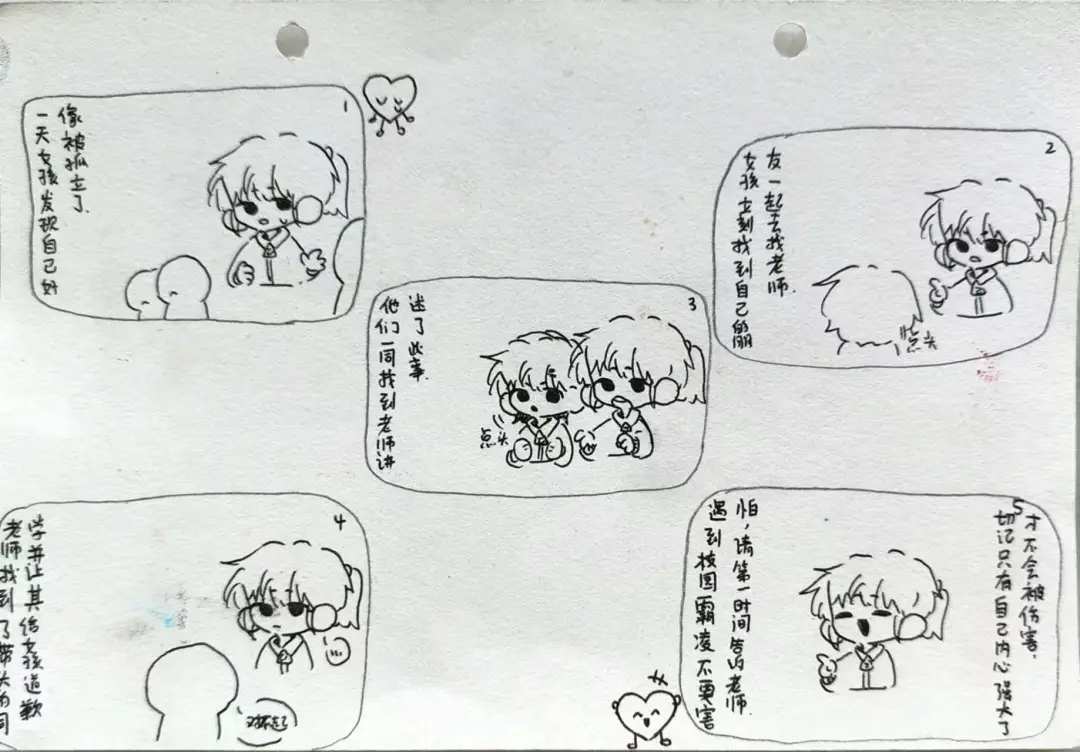 1
一天女孩发现自己好
像被孤立了.
2
女孩立刻找到自己的朋
友一起去找老师.
点头
3
他们一同找到老师讲
述了此事.
点头
4
老师找到了带头的同
学并让其给女孩道歉
对不起
5
遇到校园霸凌不要害
怕,请第一时间告诉老师.
切记只有自己内心强大了
才不会被伤害.